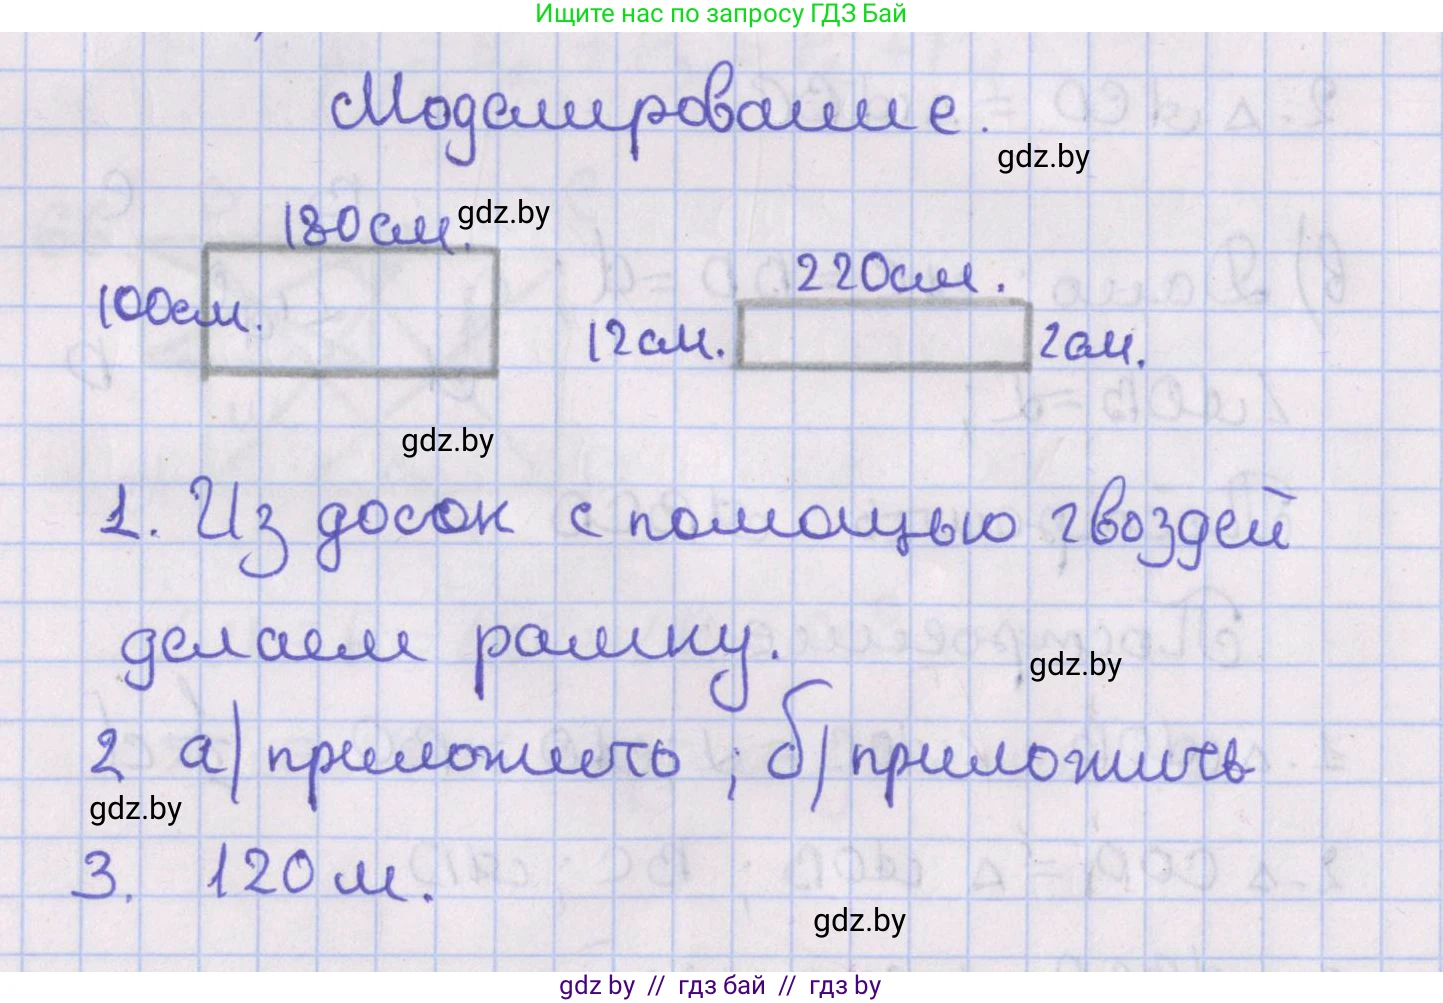 Ищите нас по запросу ГДЗ Бай
Моделирование.
gdz.by
180см.
gdz.by
100см.
220см.
12см.
2см.
gdz.by
1. Из досок с помощью гвоздей
делаем рамку.
gdz.by
2 а) приложить ; б) приложить
gdz.by
3. 120 м.
gdz.by
gdz.by // гдз бай // гдз.by